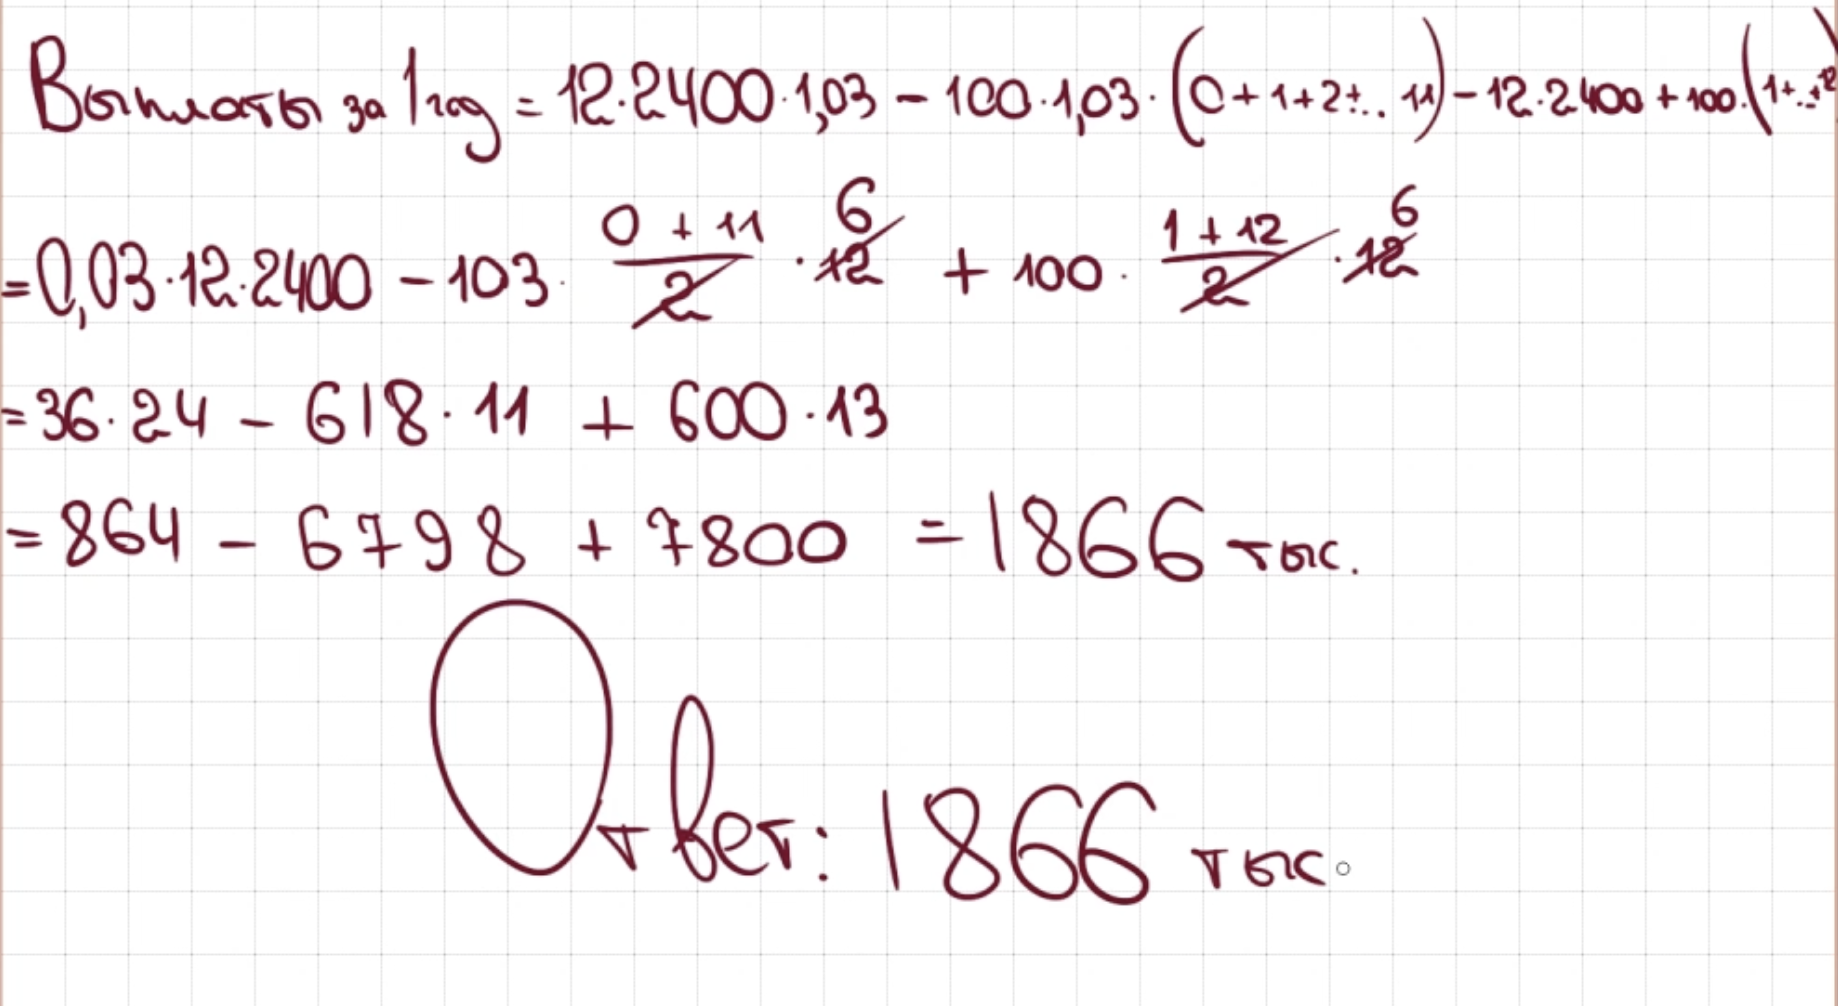 Выплаты за 1 год = 12·2400·1,03 - 100·1,03·(0+1+2+..11) - 12·2400 + 100·(1+..+12)
= 0,03·12·2400 - 103· (0 + 11)/2 · 12 6 + 100 · (1 + 12)/2 · 12 6
= 36·24 - 618·11 + 600·13
= 864 - 6798 + 7800 = 1866 тыс.
Ответ: 1866 тыс.